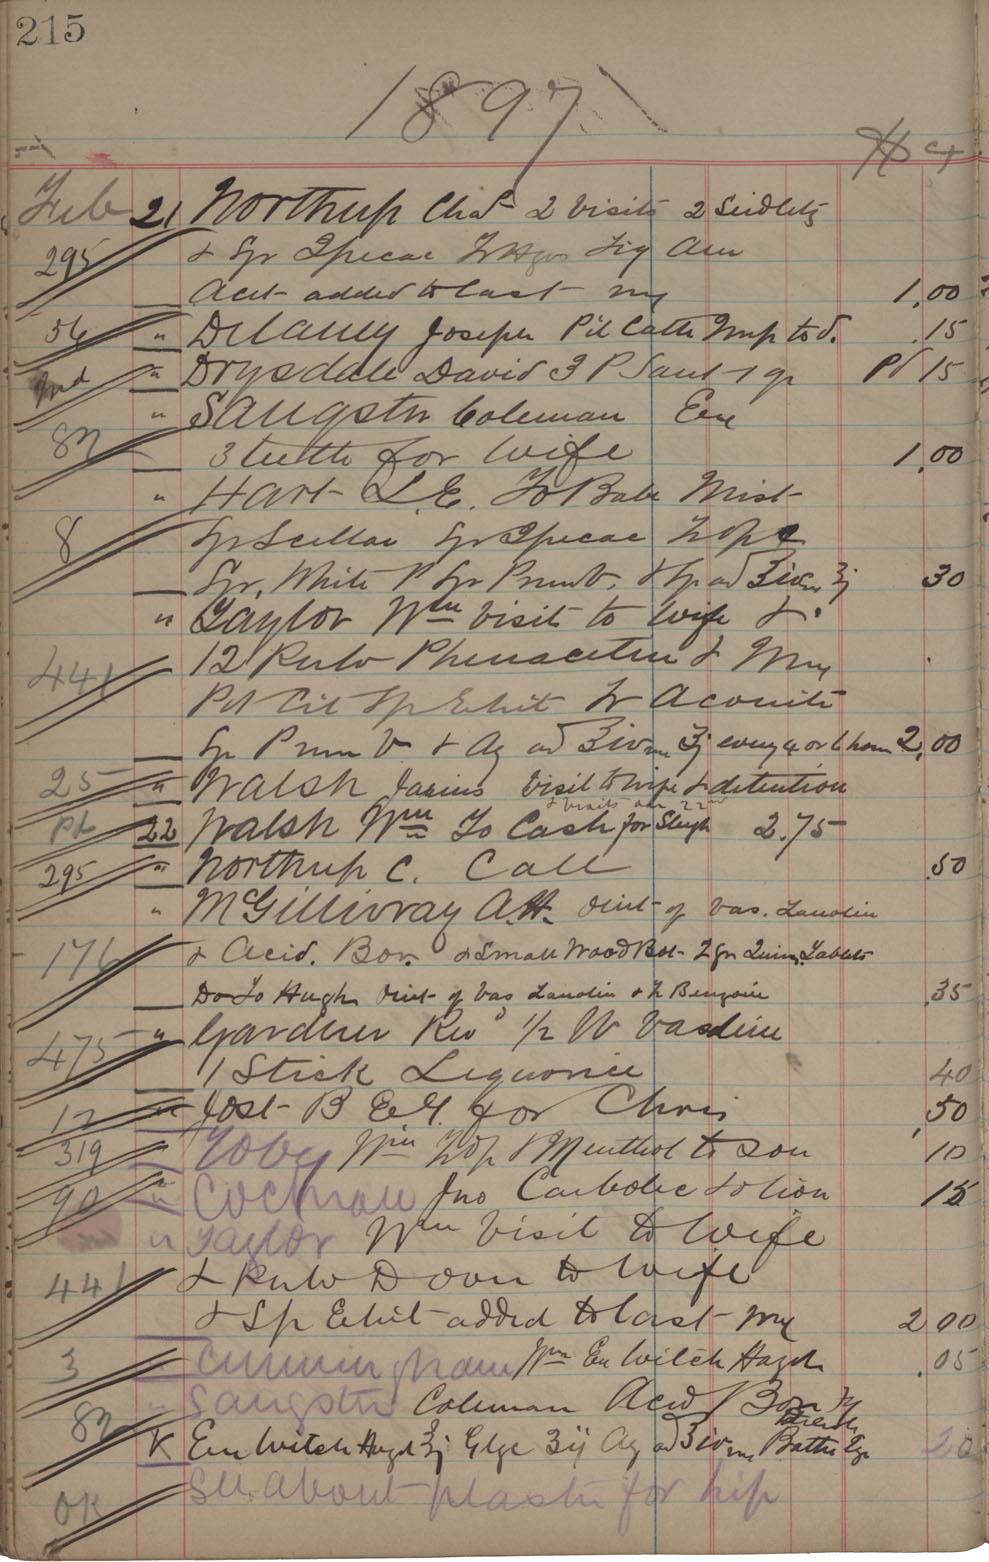 215
1897
$ ct
Feb 21 Northup Chas 2 Visits 2 Seidlitz
295 & Syr Ipecac Tr Hyos Liq Am
Acet added to last my 1.00
56 " Delaney Joseph Pil Cath Imp to d. .15
" Drysdale David 3 P Sant 1 gr Pd 15
" Sangster Coleman Ex
82 3 teeth for wife 1.00
" Hart L.E. To Babe Mist
8 Syr Scillae Syr Ipecac
Syr. White P Syr Prun V. & Sp ad 30
" Taylor Wm Visit to wife &
441 12 Pulv Phenacetin &
Pot Cit Sp Ethit Tr Aconite
Syr Prun V & Aq ad every 4 or 6 hours 2.00
25 " Walsh Jarius Visit to wife & detention
& visits on 22nd
Pd 22 Walsh Wm To Cash for Sleigh 2.75
295 " Northup C. Call .50
" McGillivray A.H. Oint of Vas. Lanolin
176 & Acid. Bor. & Small Wood Box 2 gr Quin. Tablets
Do To Hugh Oint of Vas Lanolin & Tr Benzoin .35
475 " Gardner Rev 1/2 W Vaseline
1 Stick Liquorice 40
12 " Jost B Ex for Chris .50
319 " Toby Wm & Menthol to son 10
90 " Cochran Jno Carbolic Lotion 15
" Taylor Wm Visit to wife
441 & Pulv Dover to wife
& Sp Ethit added to last my 2.00
3 " Cunningham Wm Ex Witch Hazel .05
" Sangster Coleman Acid Bor
82 K Ex Witch Hazel Glyc Aq ad Bathe Eye 20
OK See about plaster for hip